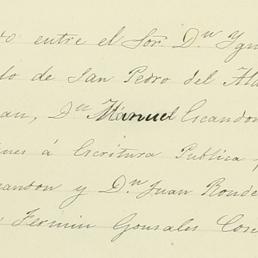 entre el Sor. Dn Ygn
do de San Pedro del Ala
an, Dn Manuel Escandon
ines á Escritura Publica
candon y Dn Juan Ronde
Fermin Gonsales Cos